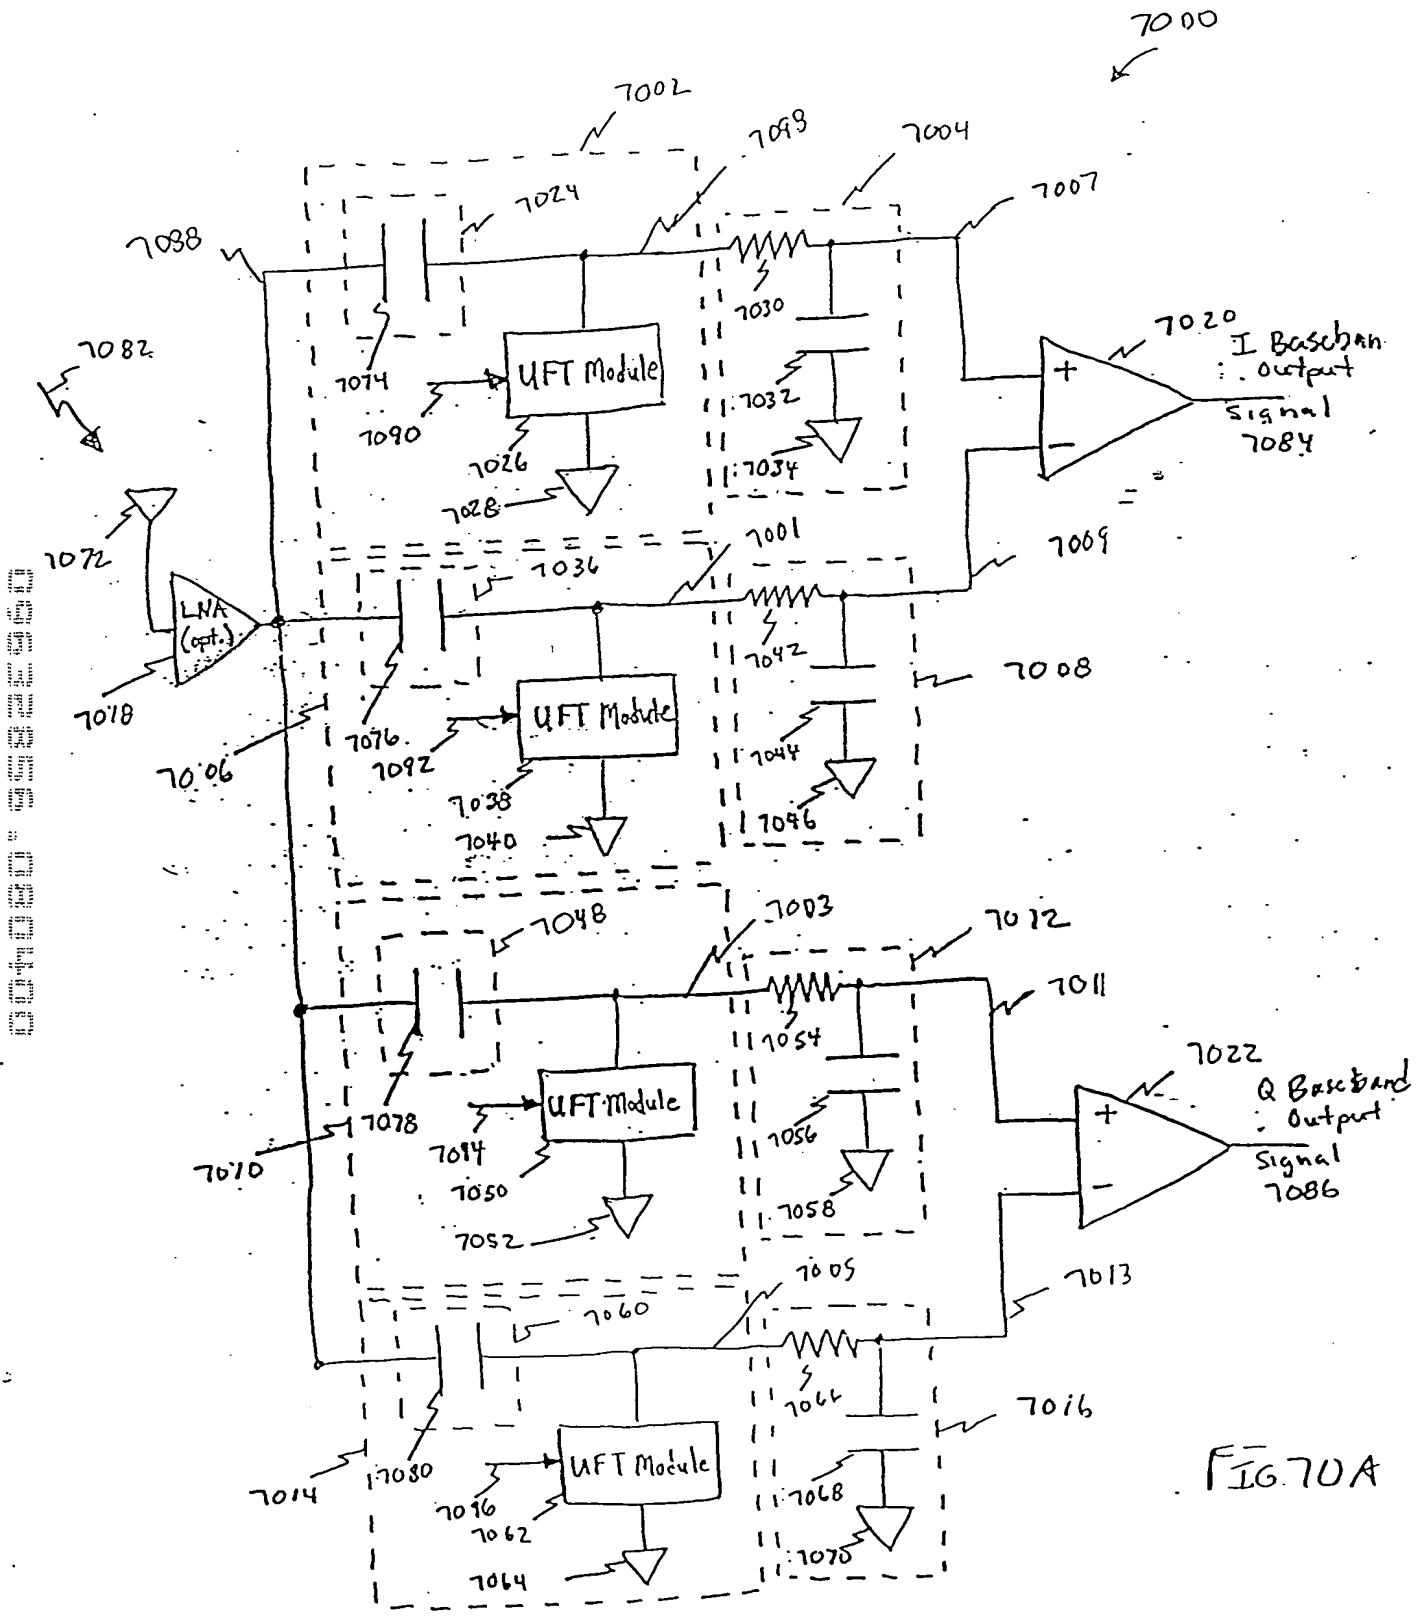 7000
7002
7098
7004
7024
7007
7088
7030
7020
I Baseban
Output
Signal
7084
7082
7074
UFT Module
7032
7090
7026
7034
7028
7001
7009
7072
7036
LNA
(opt.)
7042
7008
7018
UFT Module
7076
7044
7006
7092
7038
7046
7040
7003
7012
7048
7011
7054
7022
Q Baseband
Output
Signal
7086
7078
UFT Module
7056
7094
7010
7050
7058
7052
7005
7013
7060
7066
7016
7080
UFT Module
7014
7096
7068
7062
7070
7064
FIG. 70A
09632856.080400